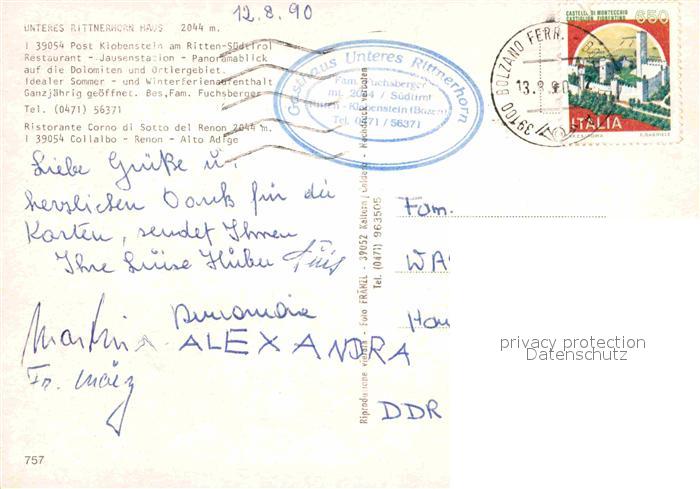 12.8.90
UNTERES RITTNERHORN HAUS 2044 m.
I 39054 Post Klobenstein am Ritten-Südtirol
Restaurant -Jausenstation - Panoramablick
auf die Dolomiten und Ortlergebiet.
Idealer Sommer - und Winterferienaufenthalt
Ganzjährig geöffnet. Bes,Fam. Fuchsberger
Tel. (0471) 56371
Ristorante Corno di Sotto del Renon 2044 m.
I 39054 Collalbo - Renon - Alto Adige
Gasthaus Unteres Rittnerhorn
Fam. Fuchsberger
mt. 2044 / Südtirol
Ritten - Klobenstein (Bozen)
Tel. 0471 / 56371
39100 BOLZANO FERR.
13.8.90
CASTELLO DI MONTECCHIO
CASTIGLION FIORENTINO
650
ITALIA
Liebe Grüße u.
herzlichen Dank für die
Karten, sendet Ihnen
Ihre Luise Huber
Martin
Annamaria
ALEXANDRA
Fr. März
Fam.
WA
Hau
DDR
Riproduzione vietata - Foto FRÄNZL - 39052 Kaltern/Caldaro - Nachdruck verboten
Tel. (0471) 963505
757
privacy protection
Datenschutz